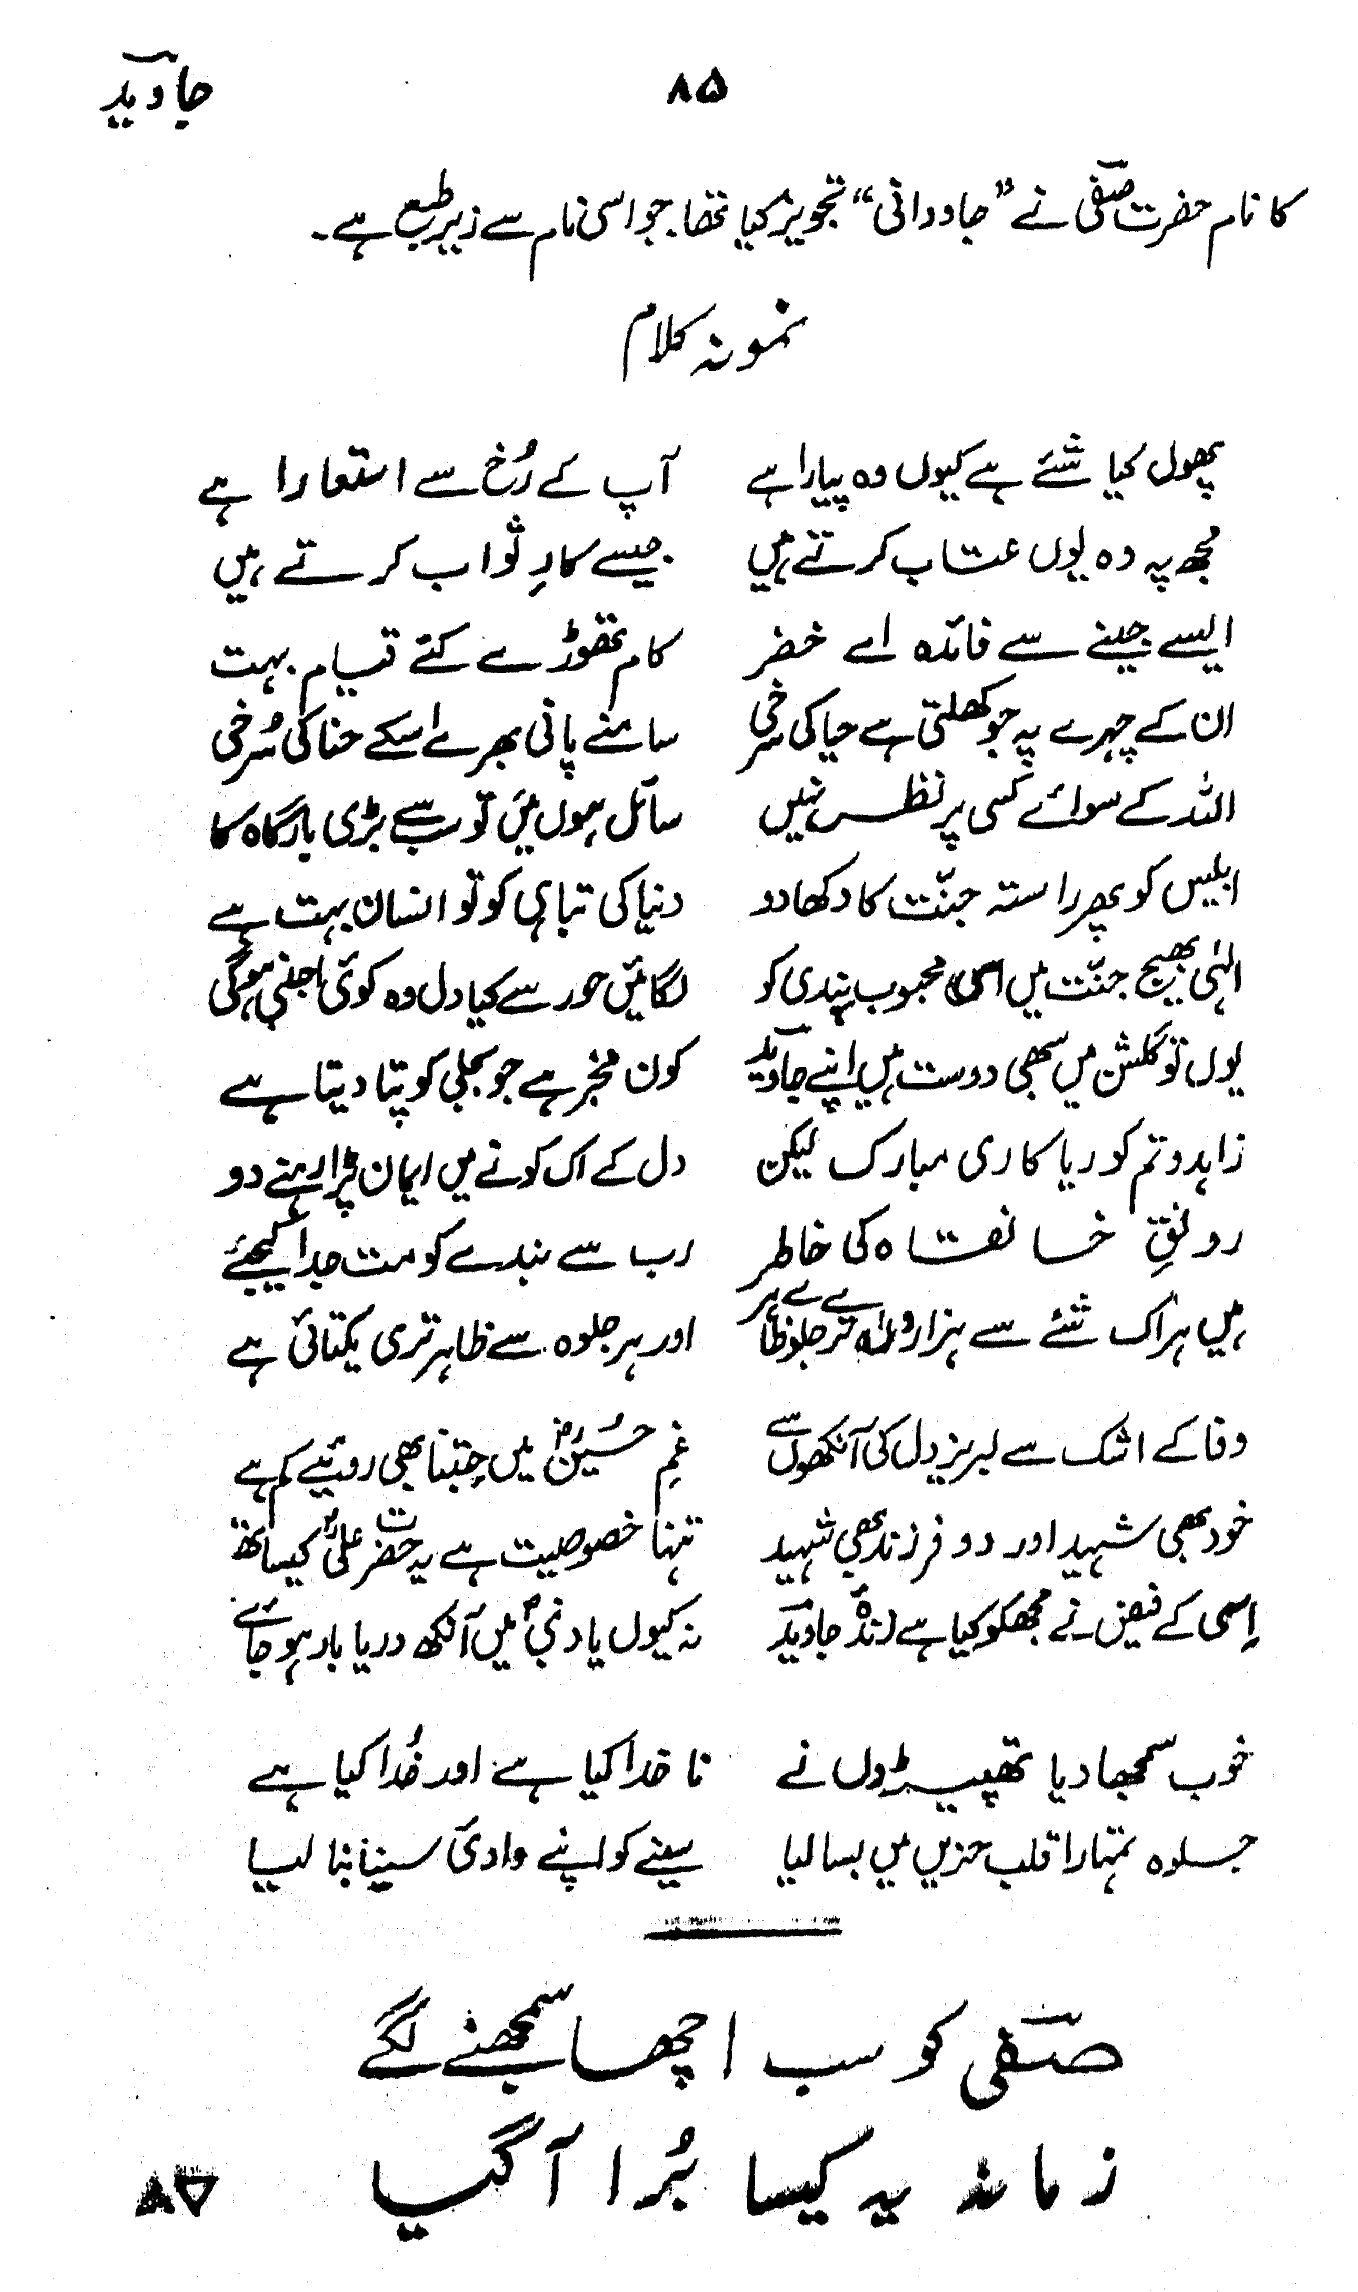 جاوید
۸۵
کا نام حضرت صفی نے ”جاودانی“ تجویز کیا تھا جو اسی نام سے زیر طبع ہے۔
نمونہ کلام
پھول کیا شئے ہے کیوں وہ پیارا ہے آپ کے رُخ سے استعارا ہے
مجھ پہ وہ یوں عتاب کرتے ہیں جیسے کارِ ثواب کرتے ہیں
ایسے جینے سے فائدہ اے خضر کام تھوڑے کئے قیام بہت
ان کے چہرے پہ جو کھلتی ہے حیا کی سرخی سامنے پانی بھرے اسکے حنا کی سُرخی
اللہ کے سوائے کسی پر نظر نہیں سائل ہوں میں تو سب سے بڑی بارگاہ کا
ابلیس کو پھر راستہ جنّت کا دکھا دو دنیا کی تباہی کو تو انسان بہت ہے
الہٰی بھیج جنّت میں اسی محبوب بندی کو لگائیں حور سے کیا دل وہ کوئی اجنبی ہوگی
یوں تو گلشن میں سبھی دوست ہیں اپنے جاوید کون مخبر ہے جو بجلی کو پتا دیتا ہے
زاہدو تم کو ریا کاری مبارک لیکن دل کے اک کونے میں ایمان پڑا رہنے دو
رونقِ خانقاہ کی خاطر رب سے بندے کو مت جدا کیجئے
ہیں ہر اک شئے سے ہزاروں ترے جلوے ظاہر اور ہر جلوہ سے ظاہر تری یکتائی ہے
وفا کے اشک سے لبریز دل کی آنکھوں سے غمِ حسُینؓ میں جِتنا بھی روئیے کم ہے
خود بھی شہید اور دو فرزند بھی شہید تنہا خصوصیت ہے یہ حضرت علیؓ کیساتھ
اِسی کے فیض نے مجھکو کیا ہے زندہٗ جاوید نہ کیوں یاد نبیؐ میں آنکھ دریا بار ہو جائے
خوب سمجھا دیا تھپیڑوں نے نا خدا کیا ہے اور خُدا کیا ہے
جلوہ تمہارا قلب حزیں میں بسا لیا سینے کو اپنے وادیٔ سینا بنا لیا
صفی کو سب اچھا سمجھنے لگے
زمانہ یہ کیسا بُرا آ گیا